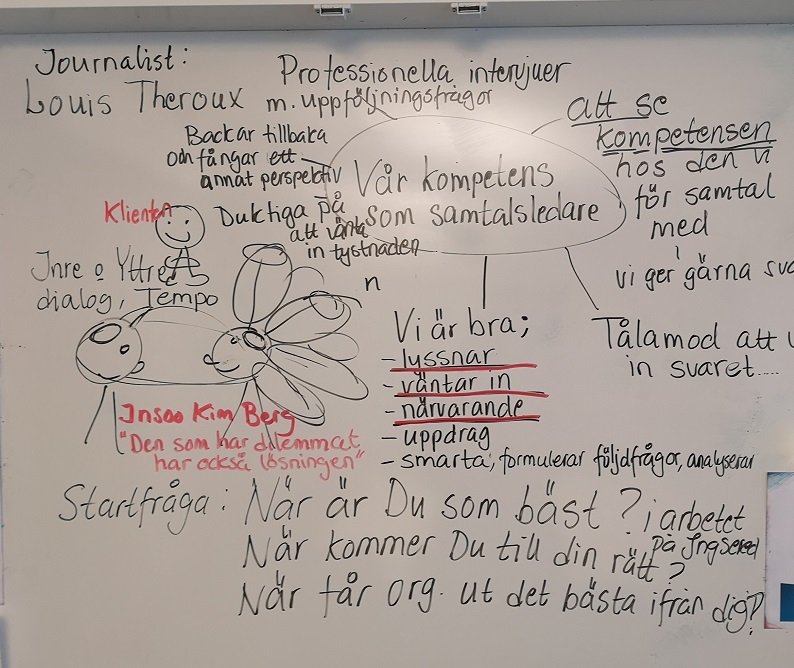 Journalist:
Louis Theroux
Professionella intervjuer
m. uppföljningsfrågor
Backar tillbaka
och fångar ett
annat perspektiv
Vår kompetens
som samtalsledare
att se
kompetensen
hos den vi
för samtal
med
vi ger gärna
Klienten
Duktiga på
att vänta
in tystnaden
Inre o Yttre
dialog, Tempo
n
Vi är bra;
- lyssnar
- väntar in
- närvarande
- uppdrag
- smarta, formulerar följdfrågor, analyserar
Tålamod att
in svaret....
Insoo Kim Berg
"Den som har dilemmat
har också lösningen"
Startfråga: När är Du som bäst? i arbetet
på Ingsered
När kommer Du till din rätt?
När får org. ut det bästa ifrån dig?